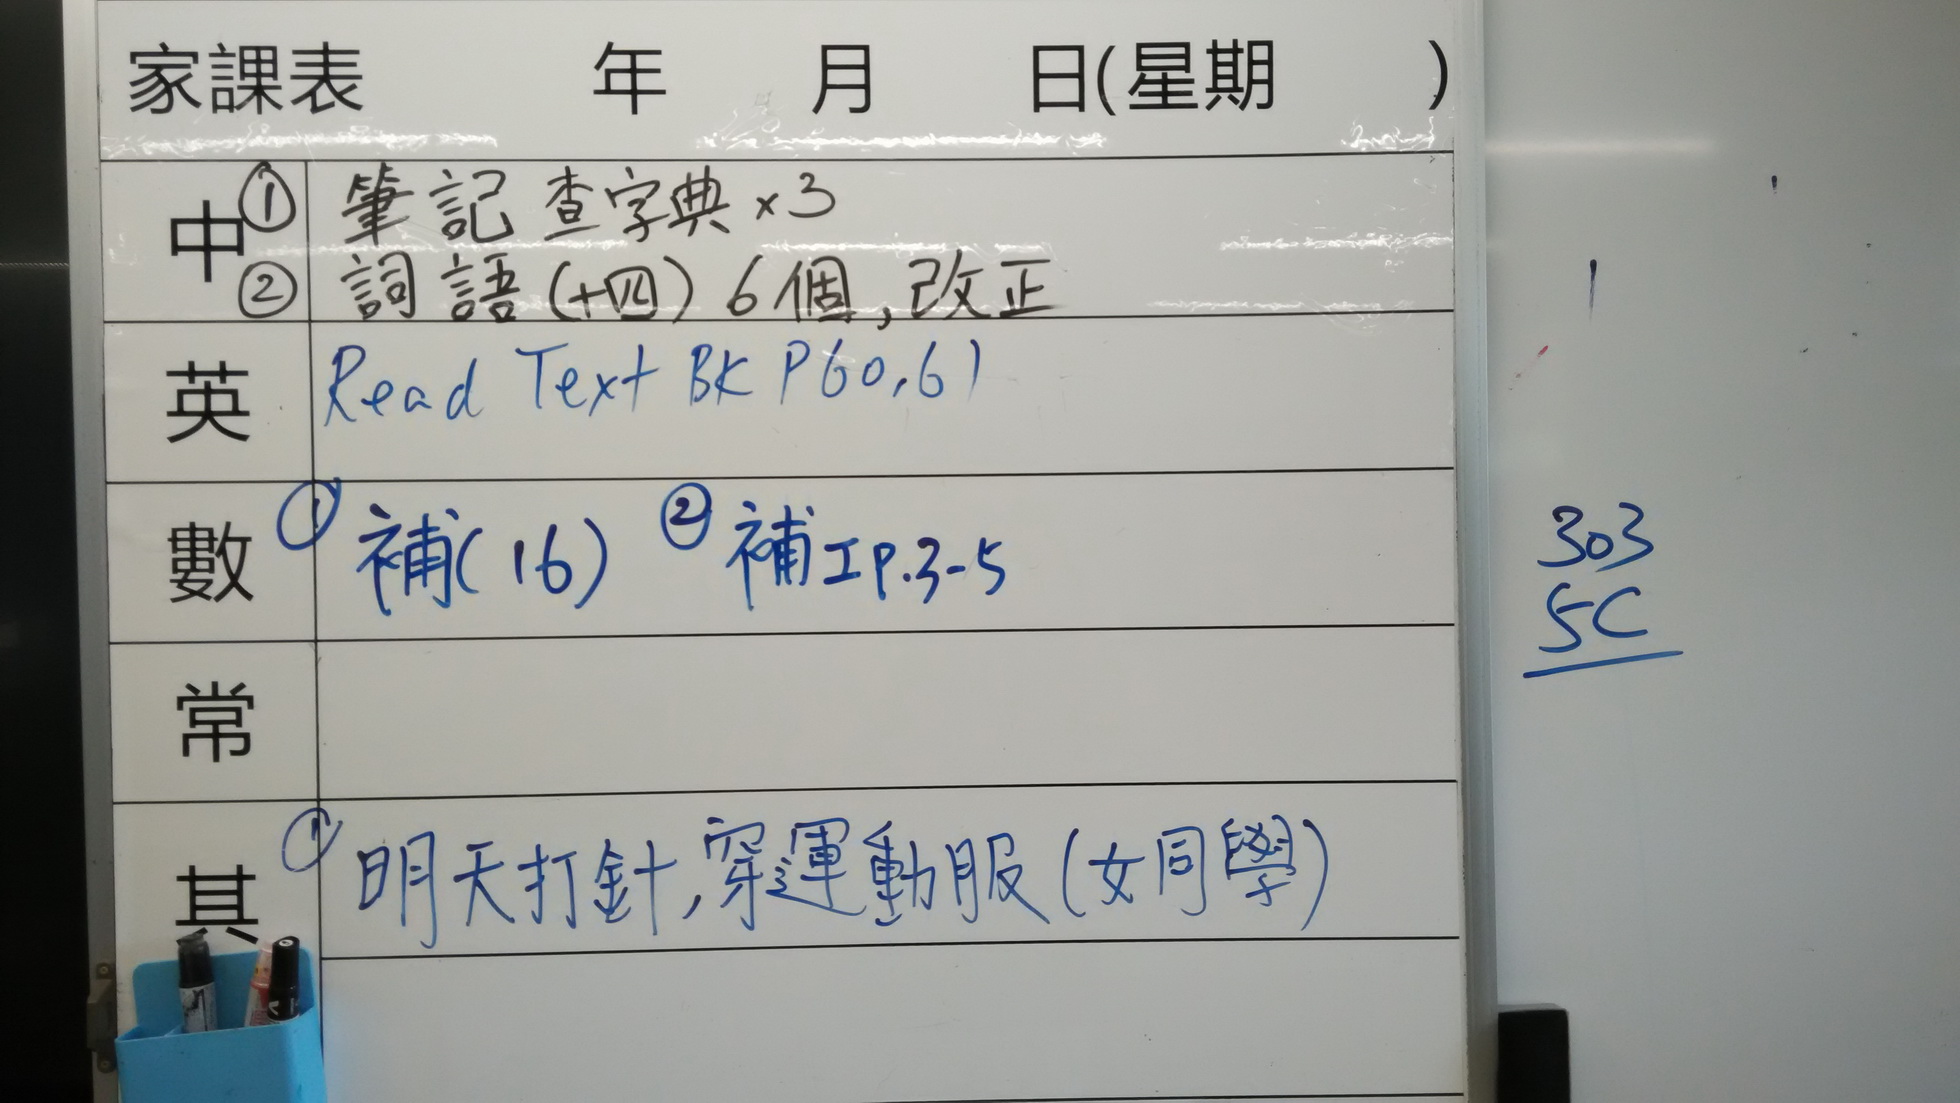 家課表 年 月 日(星期 )
中 ① 筆記 查字典 x3
② 詞語(十四) 6個,改正
英 Read Text BK P60,61
數 ① 補(16) ② 補工P.3-5
常
其 ① 明天打針,穿運動服(女同學)
303
5C